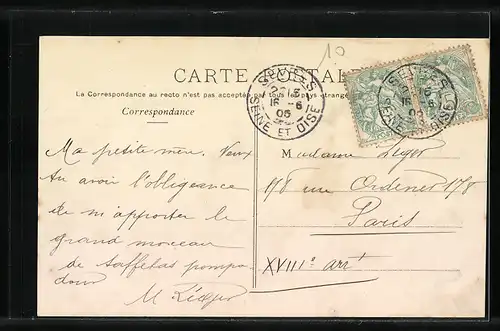 10
CARTE POSTALE
La Correspondance au recto n'est pas acceptée par tous les pays étrangers
Correspondance
SEVRES
16 -6
05
SEINE ET OISE
SEVRES
16 -6
05
SEINE ET OISE
Ma petite mère. Veux
tu avoir l'obligeance
de m'apporter le
grand morceau
de taffetas pompa-
dour
M Léger
Madame Léger
178 rue Ordener 178
Paris
XVIIIe arrt